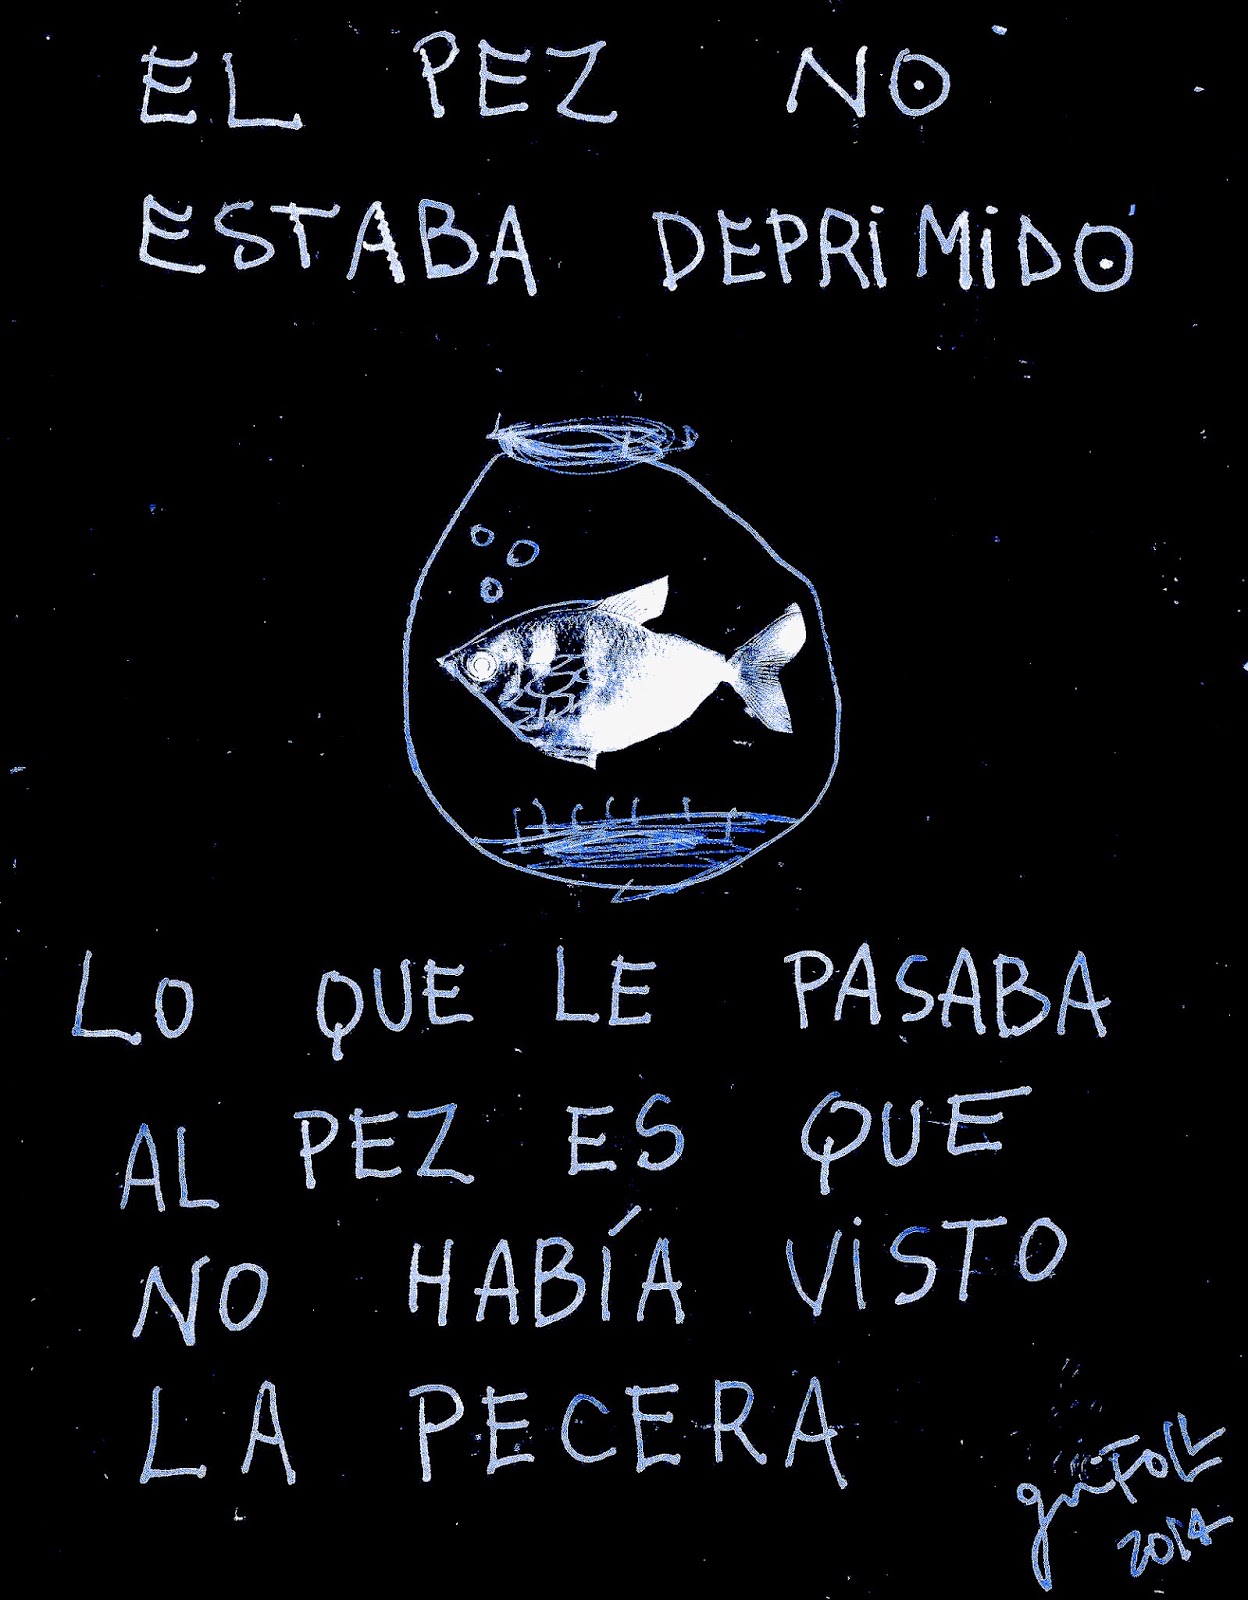 EL PEZ NO
ESTABA DEPRIMIDO
LO QUE LE PASABA
AL PEZ ES QUE
NO HABÍA VISTO
LA PECERA
2014